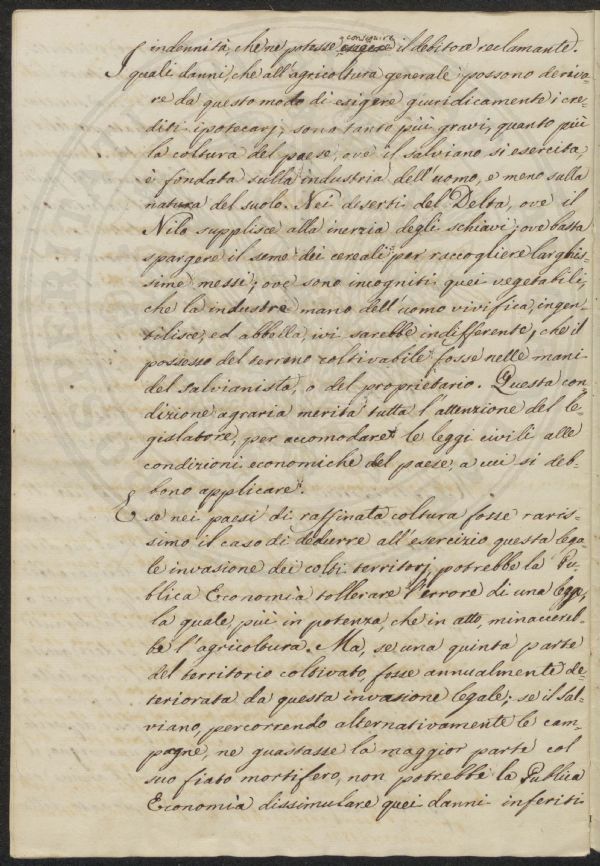 conseguire
indennità, che ne potesse esigere il debitore reclamante.
I quali danni, che all'agricoltura generale possono deriva-
re da questo modo di esigere giuridicamente i cre-
diti ipotecarj, sono tanto più gravi, quanto più
la coltura del paese, ove il salviano si esercita
è fondata sulla industria dell'uomo, e meno sulla
natura del suolo. Nei deserti del Delta, ove il
Nilo supplisce alla inerzia degli schiavi; ove basta
spargere il seme dei cereali per raccogliere larghis-
sime messi; ove sono incogniti quei vegetabili,
che la industre mano dell'uomo vivifica, ingen-
tilisce, ed abbella, ivi sarebbe indifferente, che il
possesso del terreno coltivabile fosse nelle mani
del salvianista, o del proprietario. Questa con-
dizione agraria merita tutta l'attenzione del le-
gislatore, per accomodare le leggi civili alle
condizioni economiche del paese, a cui si deb-
bono applicare.
E se nei paesi di raffinata coltura fosse raris-
simo il caso di dedurre all'esercizio questa lega-
le invasione dei colti territorj, potrebbe la Pu-
blica Economia tollerare l'errore di una legge,
la quale, più in potenza, che in atto, minaccereb-
be l'agricoltura. Ma, se una quinta parte
del territorio coltivato, fosse annualmente de-
teriorata da questa invasione legale; se il sal-
viano, percorrendo alternativamente le cam-
pagne, ne guastasse la maggior parte col
suo fiato mortifero, non potrebbe la Publica
Economia dissimulare quei danni inferiti